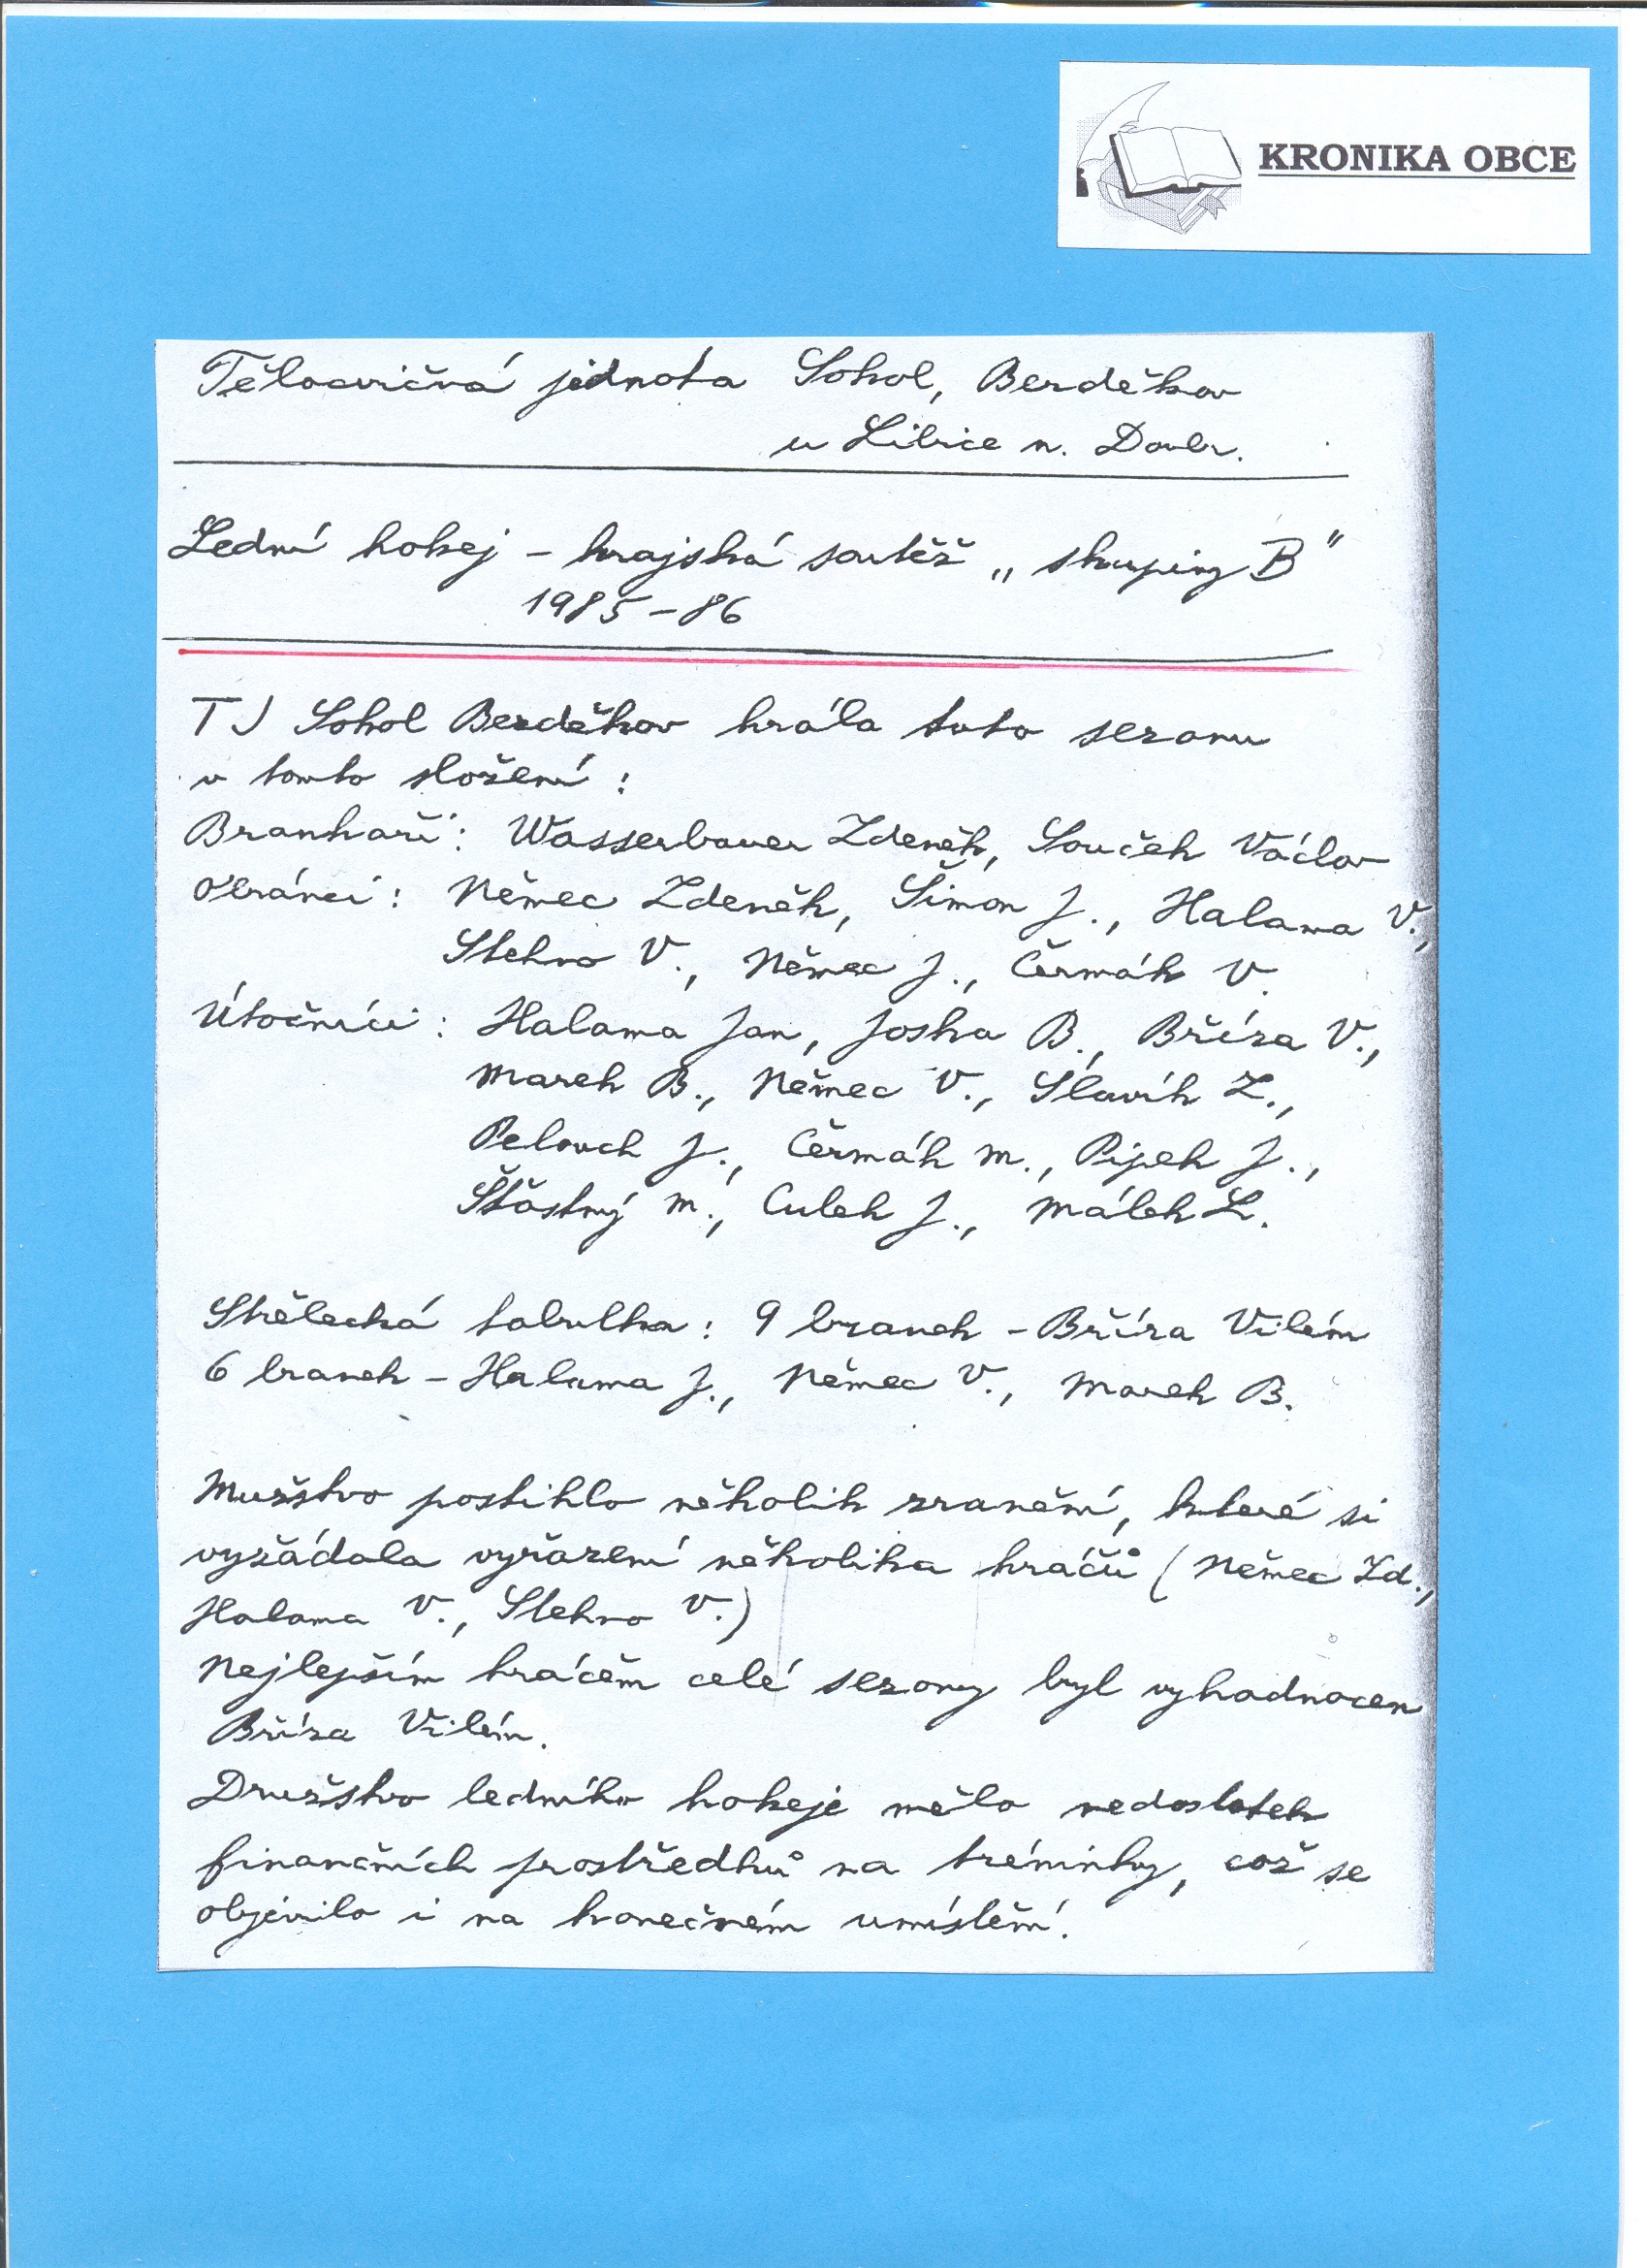 KRONIKA OBCE
Tělocvičná jednota Sokol, Bezděkov
u Libice n. Doubr.
Lední hokej – krajská soutěž „ skupiny B“
1985 – 86
TJ Sokol Bezděkov hrála tuto sezonu
v tomto složení :
Brankaři : Wasserbauer Zdeněk, Souček Václav
Obránci : Němec Zdeněk, Šimon J., Halama V.,
Stehno V., Němec J., Čermák V.
Útočníci : Halama Jan, Joska B., Bříza V.,
Marek B., Němec V., Slavík Z.,
Pelouch J., Čermák M., Pipek J.,
Šťastný M., Culek J., Málek L.
Střelecká tabulka : 9 branek – Bříza Vilém
6 branek – Halama J., Němec V., Marek B.
Mužstvo postihlo několik zranění, které si
vyžádala vyřazení několika hráčů ( Němec Zd.,
Halama V., Stehno V.)
Nejlepším hráčem celé sezony byl vyhodnocen
Bříza Vilém.
Družstvo ledního hokeje mělo nedostatek
finančních prostředků na tréninky, což se
objevilo i na konečném umístění.